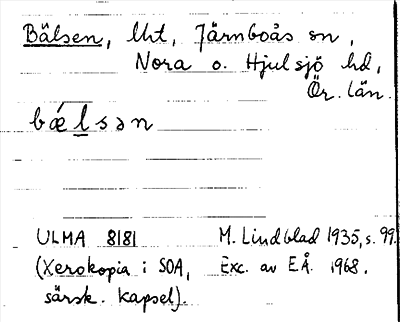 Bälsen, Uht, Järnboås sn,
Nora o. Hjulsjö hd,
Ör. län.
bǽlsən
ULMA 8181 M. Lindblad 1935, s. 99.
(Xerokopia i SOA, Exc. av E.Å. 1968.
särsk. kapsel).